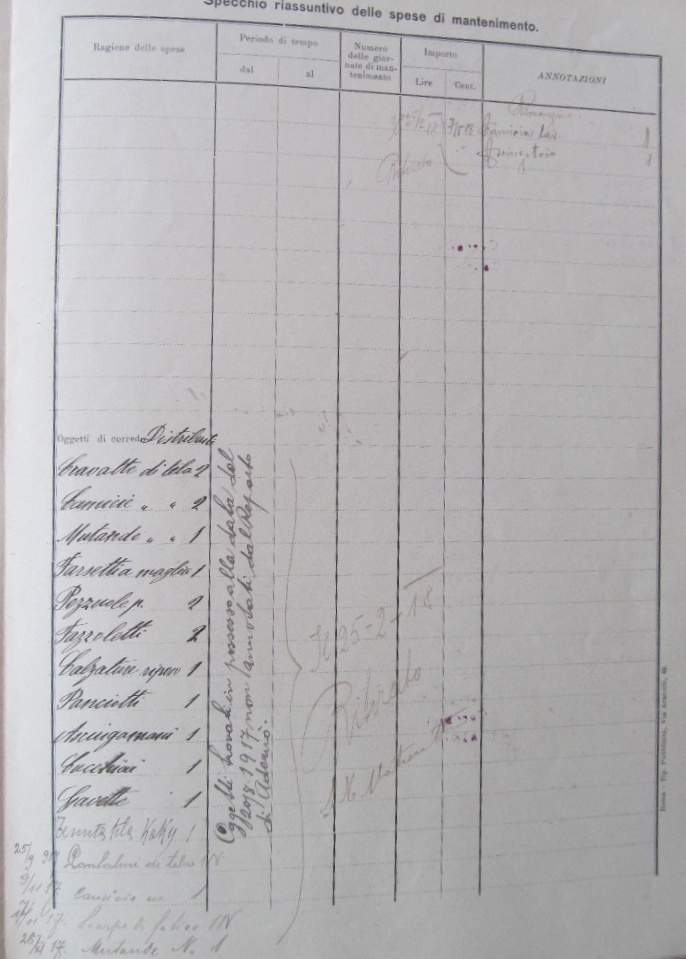 Specchio riassuntivo delle spese di mantenimento.
Ragione delle spese
Periodo di tempo
dal
al
Numero delle gior-
nate di man-
tenimento
Importo
Lire
Cent.
ANNOTAZIONI
Camicia
1
1
Ritirato
Oggetti di corredo Distribuiti
Cravatte di tela 2
Camicie „ „ 2
Mutande „ „ 1
Farsetti a maglia 1
Pezzuole p. 2
Fazzoletti 2
Calzature riposo 1
Panciotti 1
Asciugamani 1
Cucchiai 1
Gavette 1
Tenuta tela Kaky 1
Oggetti trovati in possesso alla data del
20/8 1917 non annotati dal Reparto
di Adernò.
Il 25-2-18
Ritirato
25/9 917 Pantaloni di tela 1 N
9/11 17 Camicia 1
17. Scarpe di 1 N
17. Mutande N. 1
Roma - Tip. Pubblicità, Via